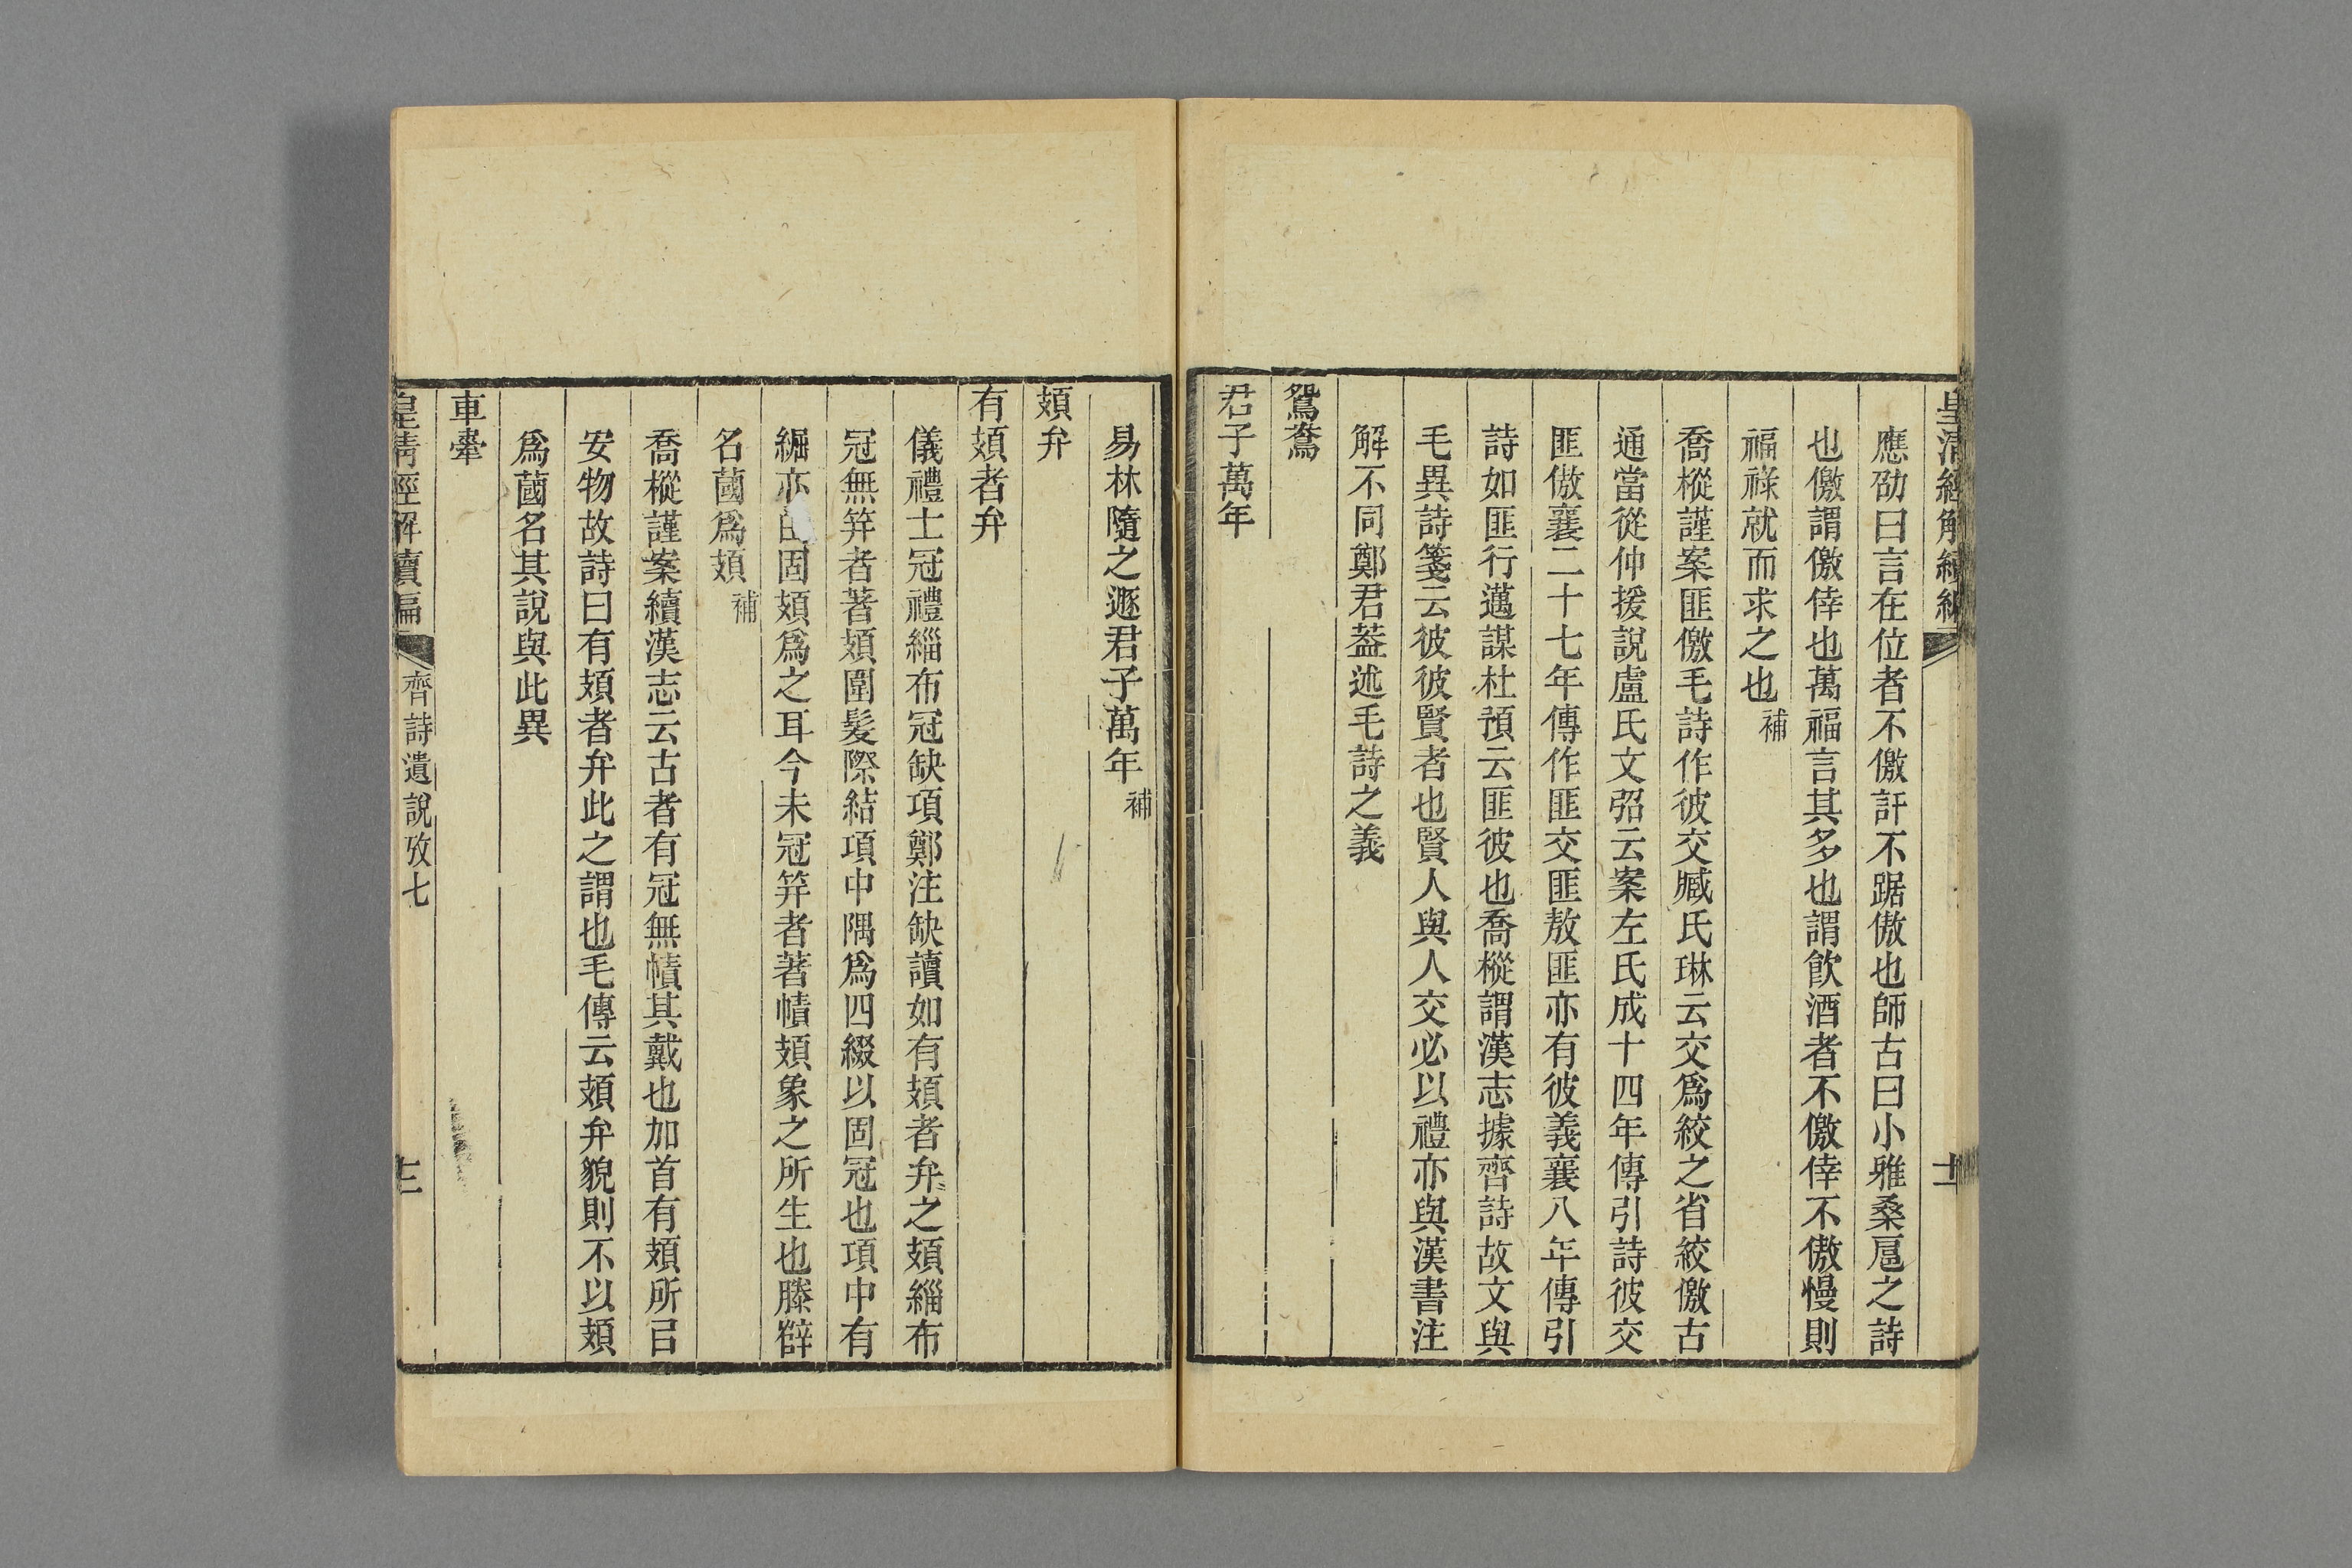 皇清經解續編
十一
應劭曰言在位者不儌訐不踞傲也師古曰小雅桑扈之詩
也儌謂儌倖也萬福言其多也謂飮酒者不儌倖不傲慢則
福祿就而求之也補
喬樅謹案匪儌毛詩作彼交臧氏琳云交爲絞之省絞儌古
通當從仲援說盧氏文弨云案左氏成十四年傳引詩彼交
匪傲襄二十七年傳作匪交匪敖匪亦有彼義襄八年傳引
詩如匪行邁謀杜預云匪彼也喬樅謂漢志據齊詩故文與
毛異詩箋云彼彼賢者也賢人與人交必以禮亦與漢書注
解不同鄭君葢述毛詩之義
鴛鴦
君子萬年
易林隨之遯君子萬年補
頍弁
有頍者弁
儀禮士冠禮緇布冠缺項鄭注缺讀如有頍者弁之頍緇布
冠無笄者著頍圍髮際結項中隅爲四綴以固冠也項中有
𦀖亦由固頍爲之耳今未冠笄者著幘頍象之所生也滕薛
名蔮爲頍補
喬樅謹案續漢志云古者有冠無幘其戴也加首有頍所㠯
安物故詩曰有頍者弁此之謂也毛傳云頍弁貌則不以頍
爲蔮名其說與此異
車舝
皇清經解續編
齊詩遺說攷七
十二